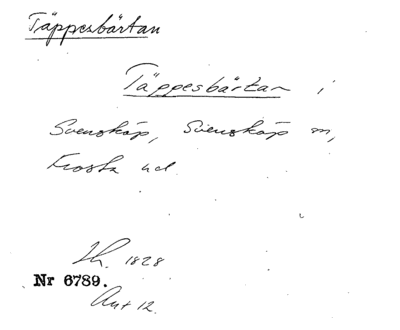 Täppesbärtan
Täppesbärtan i
Svensköp, Svensköp sn,
Frosta hd.
Lh. 1828
Nr 6789.
Ant 12.